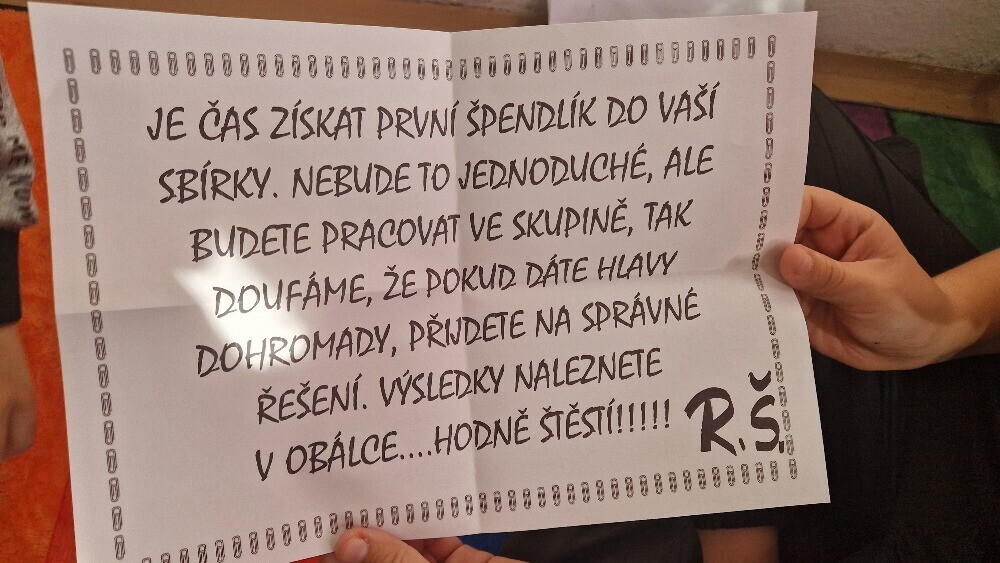 JE ČAS ZÍSKAT PRVNÍ ŠPENDLÍK DO VAŠÍ
SBÍRKY. NEBUDE TO JEDNODUCHÉ, ALE
BUDETE PRACOVAT VE SKUPINĚ, TAK
DOUFÁME, ŽE POKUD DÁTE HLAVY
DOHROMADY, PŘIJDETE NA SPRÁVNÉ
ŘEŠENÍ. VÝSLEDKY NALEZNETE
V OBÁLCE....HODNĚ ŠTĚSTÍ!!!!!
R.Š.